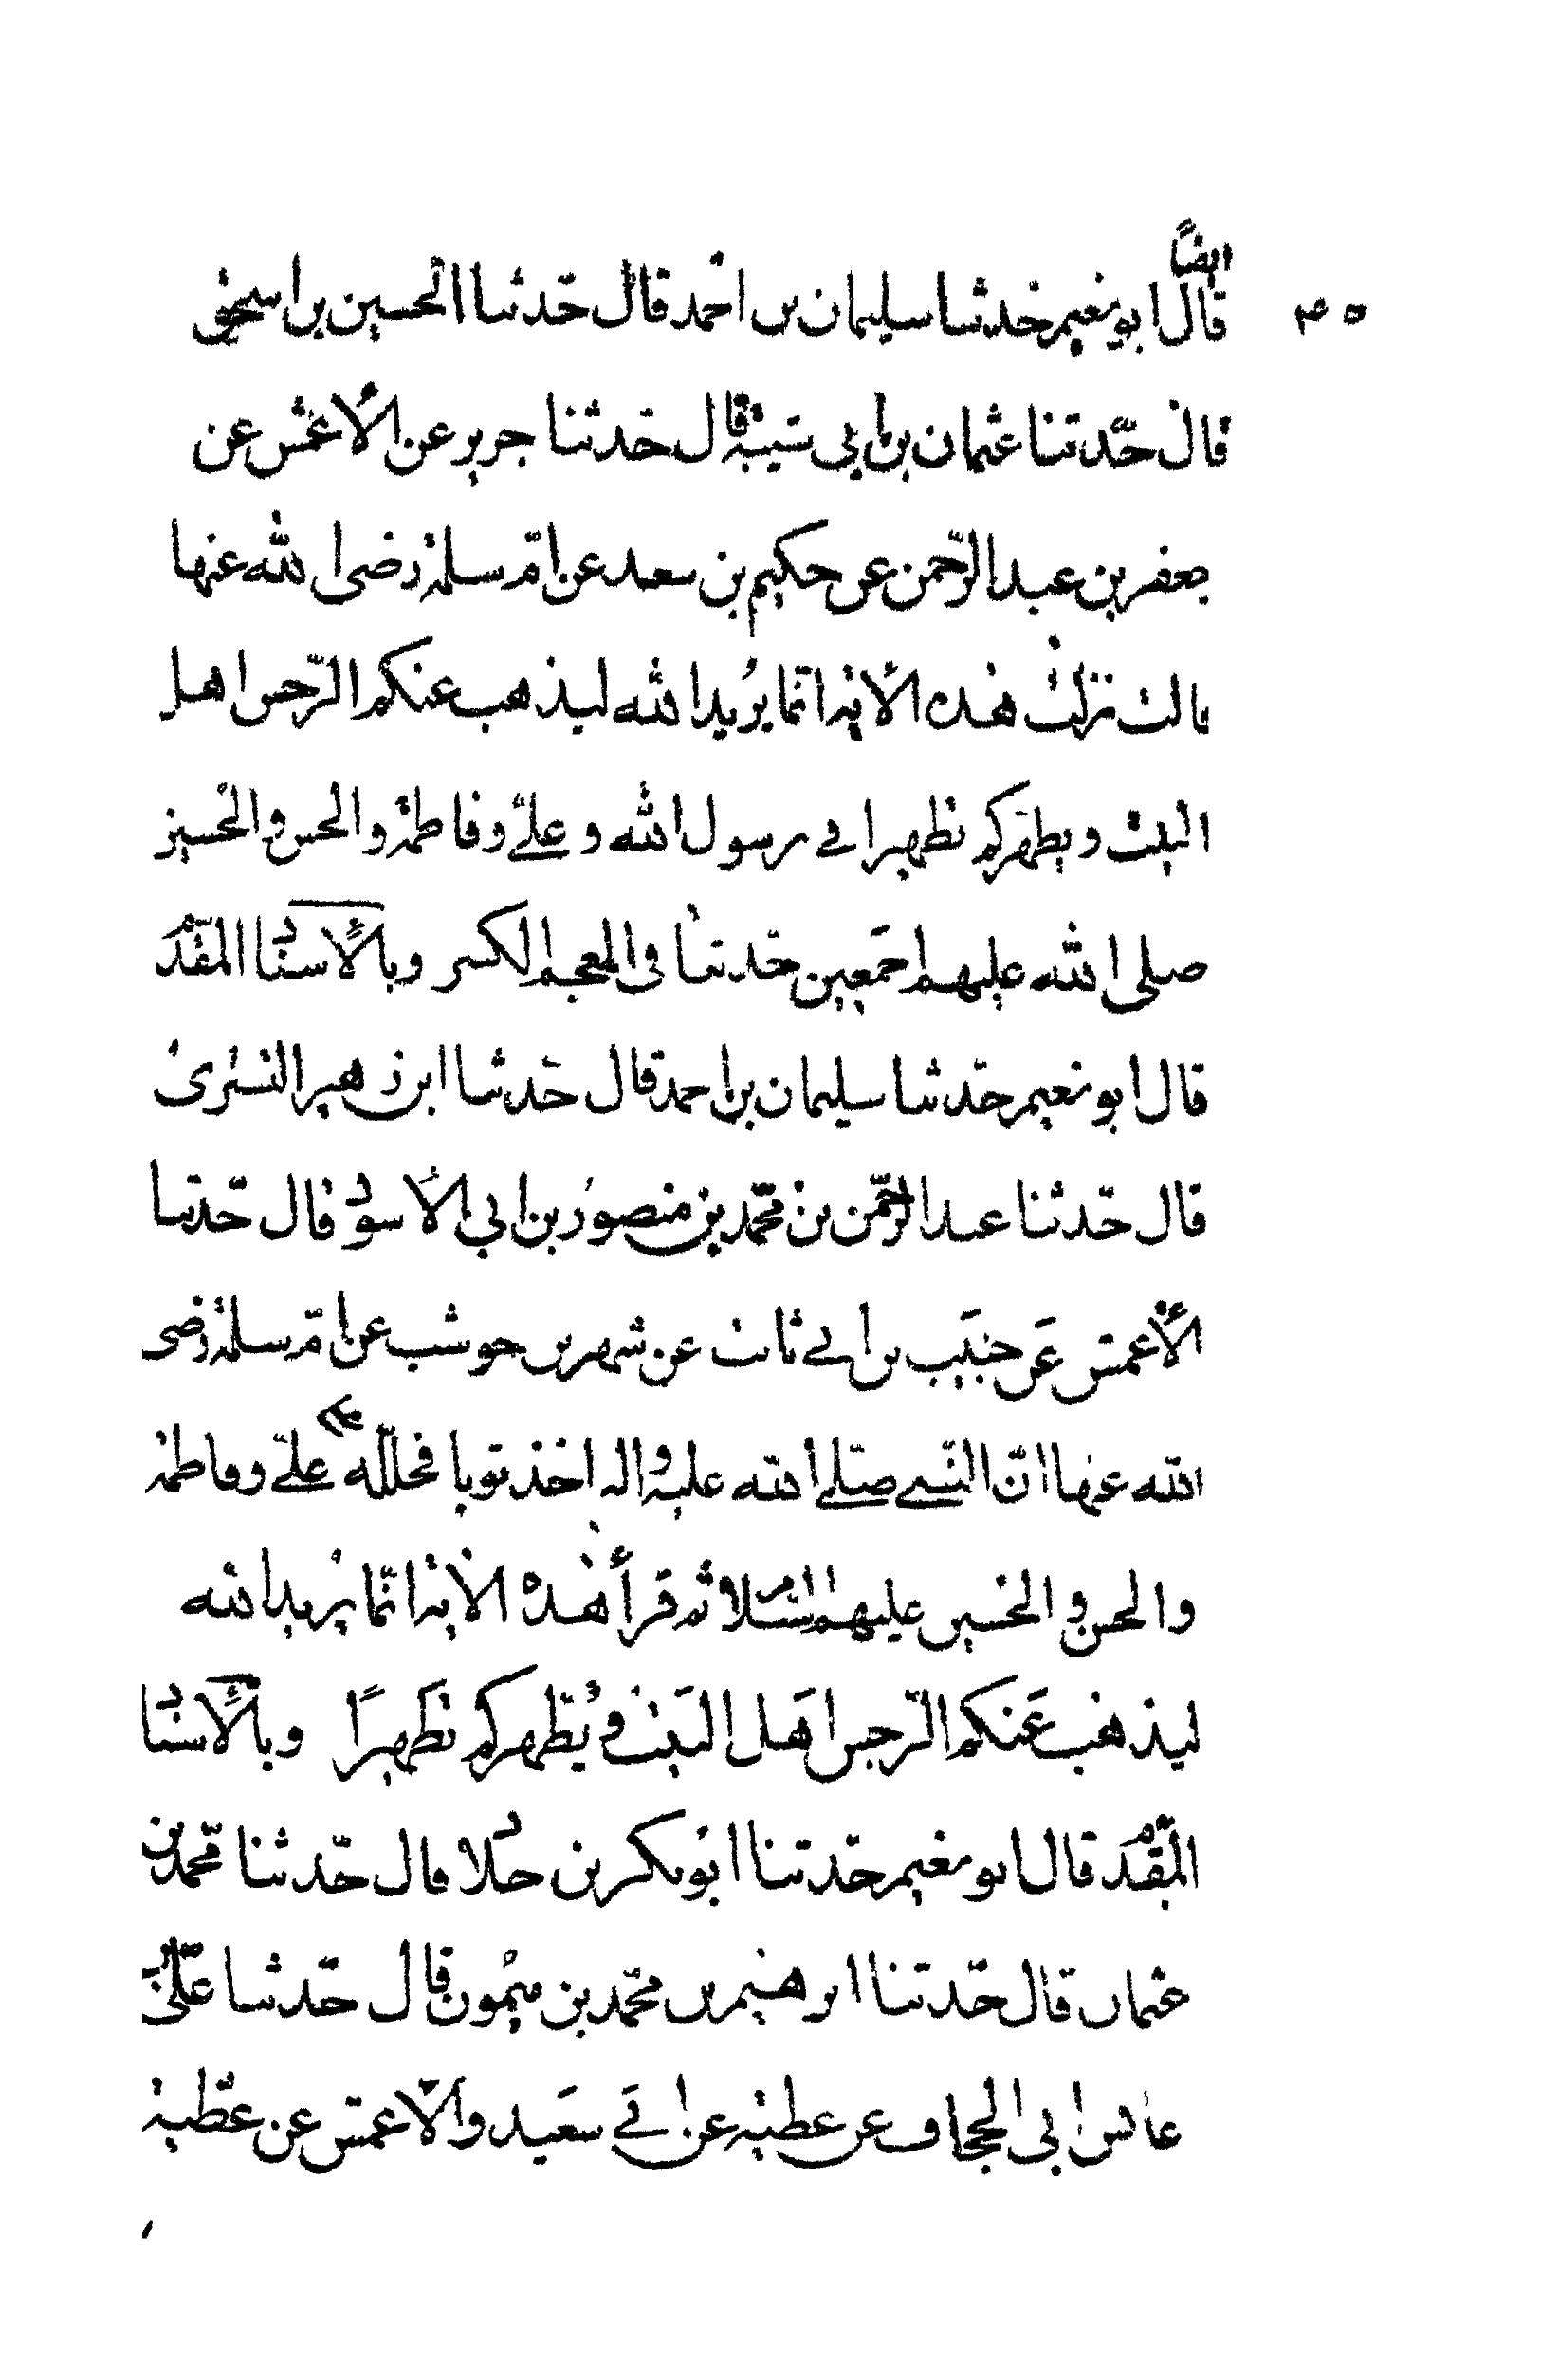 ايضًا
قال ابو نعيم حدثنا سليمان بن احمد قال حدثنا الحسين بن اسحق
قال حدثنا عثمان بن ابي شيبة قال حدثنا جرير عن الأعمش عن
جعفر بن عبد الرحمن عن حكيم بن سعد عن امّ سلمة رضى الله عنها
قالت نزلت هذه الأية انّما يريد الله ليذهب عنكم الرّجس اهل
البيت ويطهّركم تطهيرا في رسول الله و علىّ وفاطمة والحسن والحسين
صلى الله عليهم اجمعين حدثنا فى المعجم الكبير وبالأسناد المقدّم
قال ابو نعيم حدثنا سليمان بن احمد قال حدثنا ابن زهير التسترى
قال حدّثنا عبد الرحمن بن محمّد بن منصور بن ابي الأسود قال حدّثنا
الأعمش عن حبيب بن ابي ثابت عن شهر بن حوشب عن امّ سلمة رضى
الله عنها انّ النبىّ صلى الله عليه واله اخذ ثوبا فجلله على علىّ وفاطمة
والحسن والحسين عليهم السلام ثم قرأ هذه الأية انّما يريد الله
ليذهب عنكم الرّجس اهل البيت ويطهّركم تطهيرًا وبالأسناد
المقدّم قال ابو نعيم حدّثنا ابو بكر بن خلاد قال حدّثنا محمّد بن
عثمان قال حدّثنا ابرهيم بن محمّد بن ميمون قال حدّثنا علىّ بن
عابس ابي الجحاف عن عطية عن ابي سعيد والأعمش عن عطية